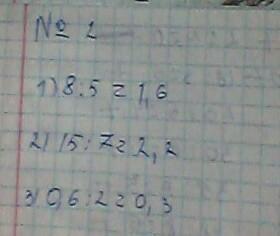 № 1
1) 8:5=1,6
2) 15:7=2,2
3) 0,6:2=0,3